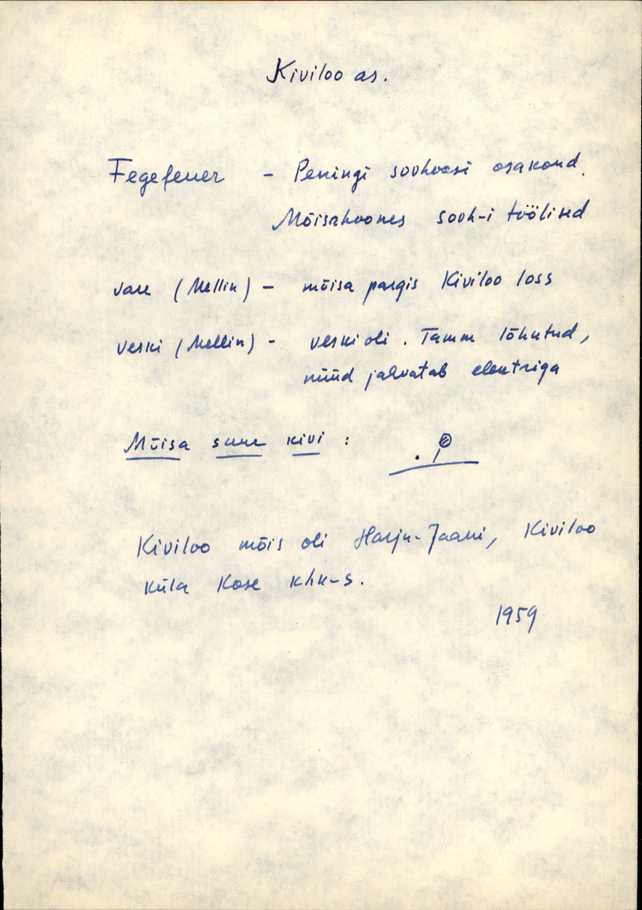 Kiviloo as.
Fegefeuer – Peningi sovhoosi osakond.
Mõisahoones sovh-i töölised
vare (Mellin) – mõisa pargis Kiviloo loss
veski (Mellin) – veski oli. Tamm lõhutud,
nüüd jahvatab elektriga
Mõisa suur kivi :
Kiviloo mõis oli Harju-Jaani, Kiviloo
küla Kose khk-s.
1959